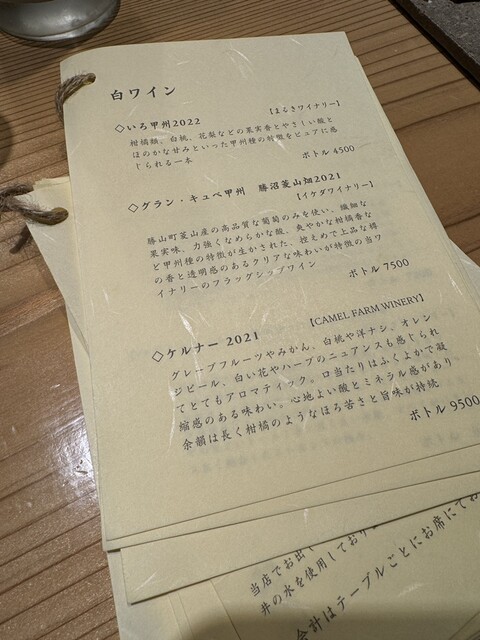 白ワイン
◇いろ甲州2022
【まるきワイナリー】
柑橘類、白桃、花梨などの果実香とやさしい酸と
ほのかな甘みといった甲州種の特徴をピュアに感
じられる一本
ボトル 4500
◇グラン・キュベ甲州 勝沼菱山畑2021
【イケダワイナリー】
勝山町菱山産の高品質な葡萄のみを使い、繊細な
果実味、力強くなめらかな酸、爽やかな柑橘香な
ど甲州種の特徴が生かされた、控えめで上品な樽
の香と透明感のあるクリアな味わいが特徴の当ワ
イナリーのフラッグシップワイン
ボトル 7500
◇ケルナー 2021
【CAMEL FARM WINERY】
グレープフルーツやみかん、白桃や洋ナシ、オレン
ジピール、白い花やハーブのニュアンスも感じられ
てとてもアロマティック。口当たりはふくよかで凝
縮感のある味わい。心地よい酸とミネラル感があり
余韻は長く柑橘のようなほろ苦さと旨味が持続
ボトル 9500
当店でお出し
井の水を使用しており
会計はテーブルごとにお席にてお